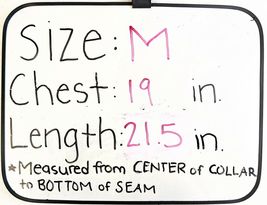 Size: M
Chest: 19 in.
Length: 21.5 in.
*Measured from CENTER of COLLAR
to BOTTOM of SEAM